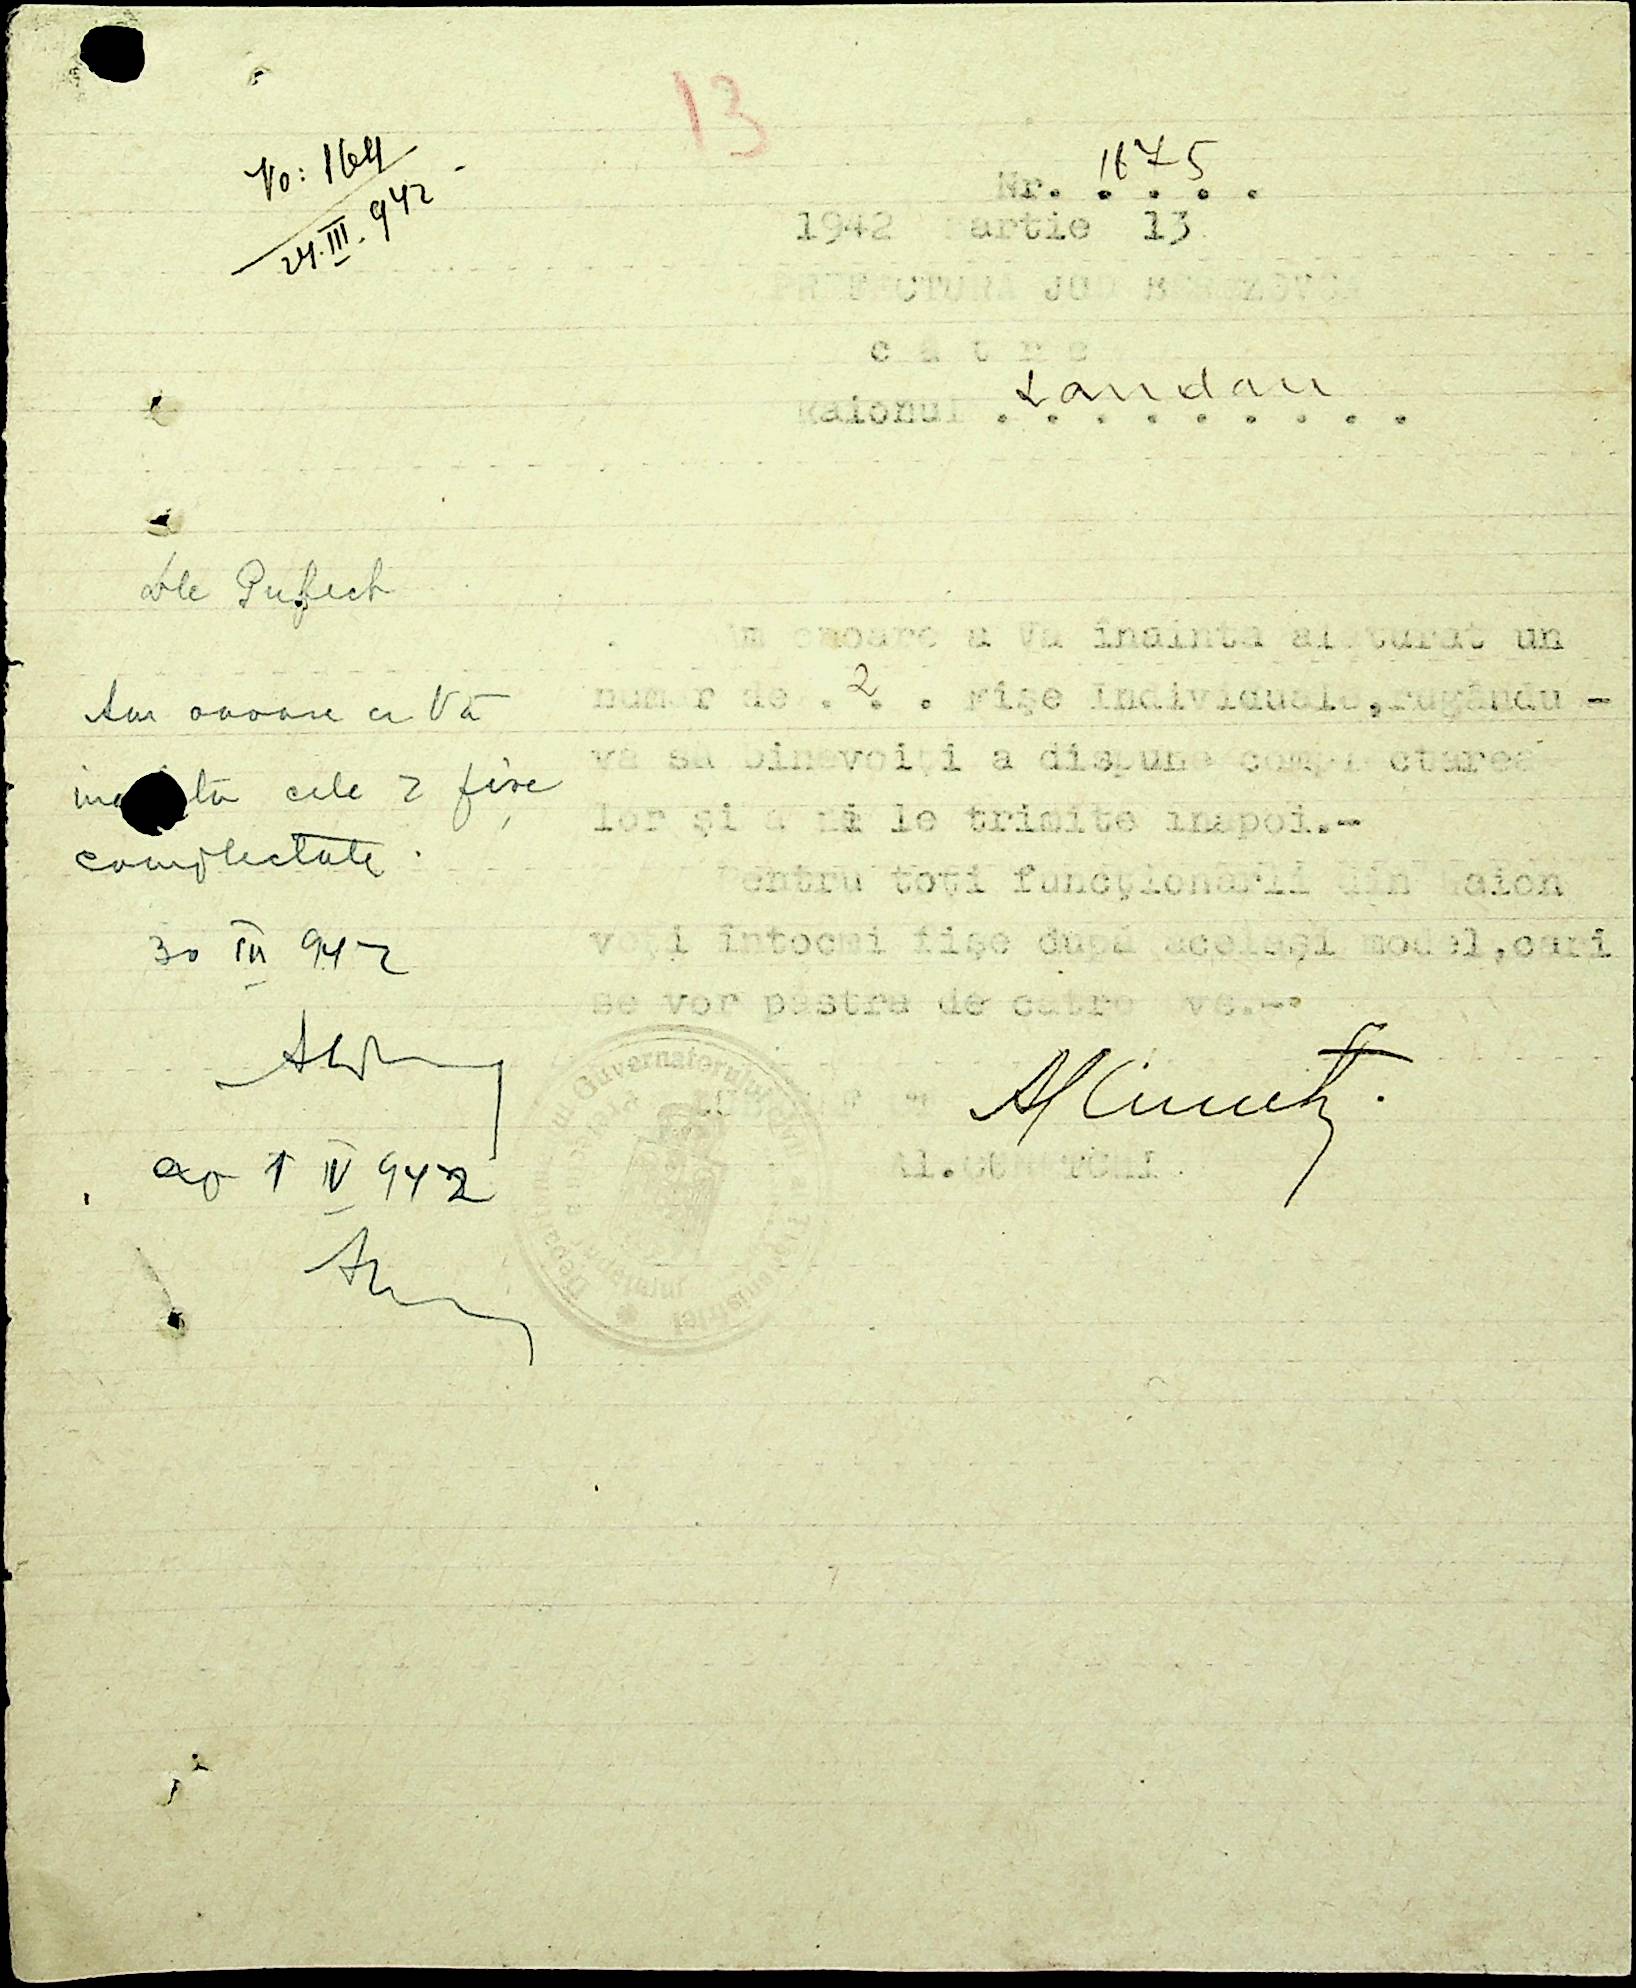 13
No: 164
24.III.942
Nr. 1675
1942 Martie 13
PREFECTURA JUD BEREZOVCA
către
Raionul Landau
Am onoare a Vă înainta alăturat un
număr de . 2 . . fișe individuale, rugându-
vă să binevoiți a dispune complectarea
lor și a ni le trimite înapoi.-
Pentru toți funcționarii din Raion
veți întocmi fișe după același model, cari
se vor păstra de către Dvs.-
Al.
Dle Prefect
Am onoare a Vă
inainta cele 2 fișe
complectate.
30 III 942
1 IV 942
Guvernatorului
Prefectura
Județului